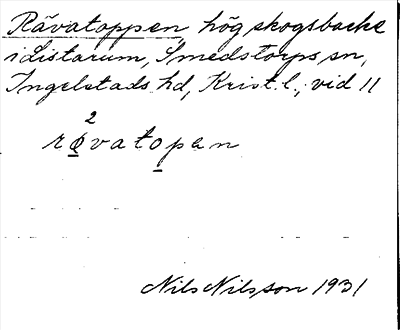 Rävatoppen, hög skogsbacke
i Listarum, Smedstorps sn,
Ingelstads hd, Krist. l., vid 11
2
rø̲vato̲pen
Nils Nilsson 1931